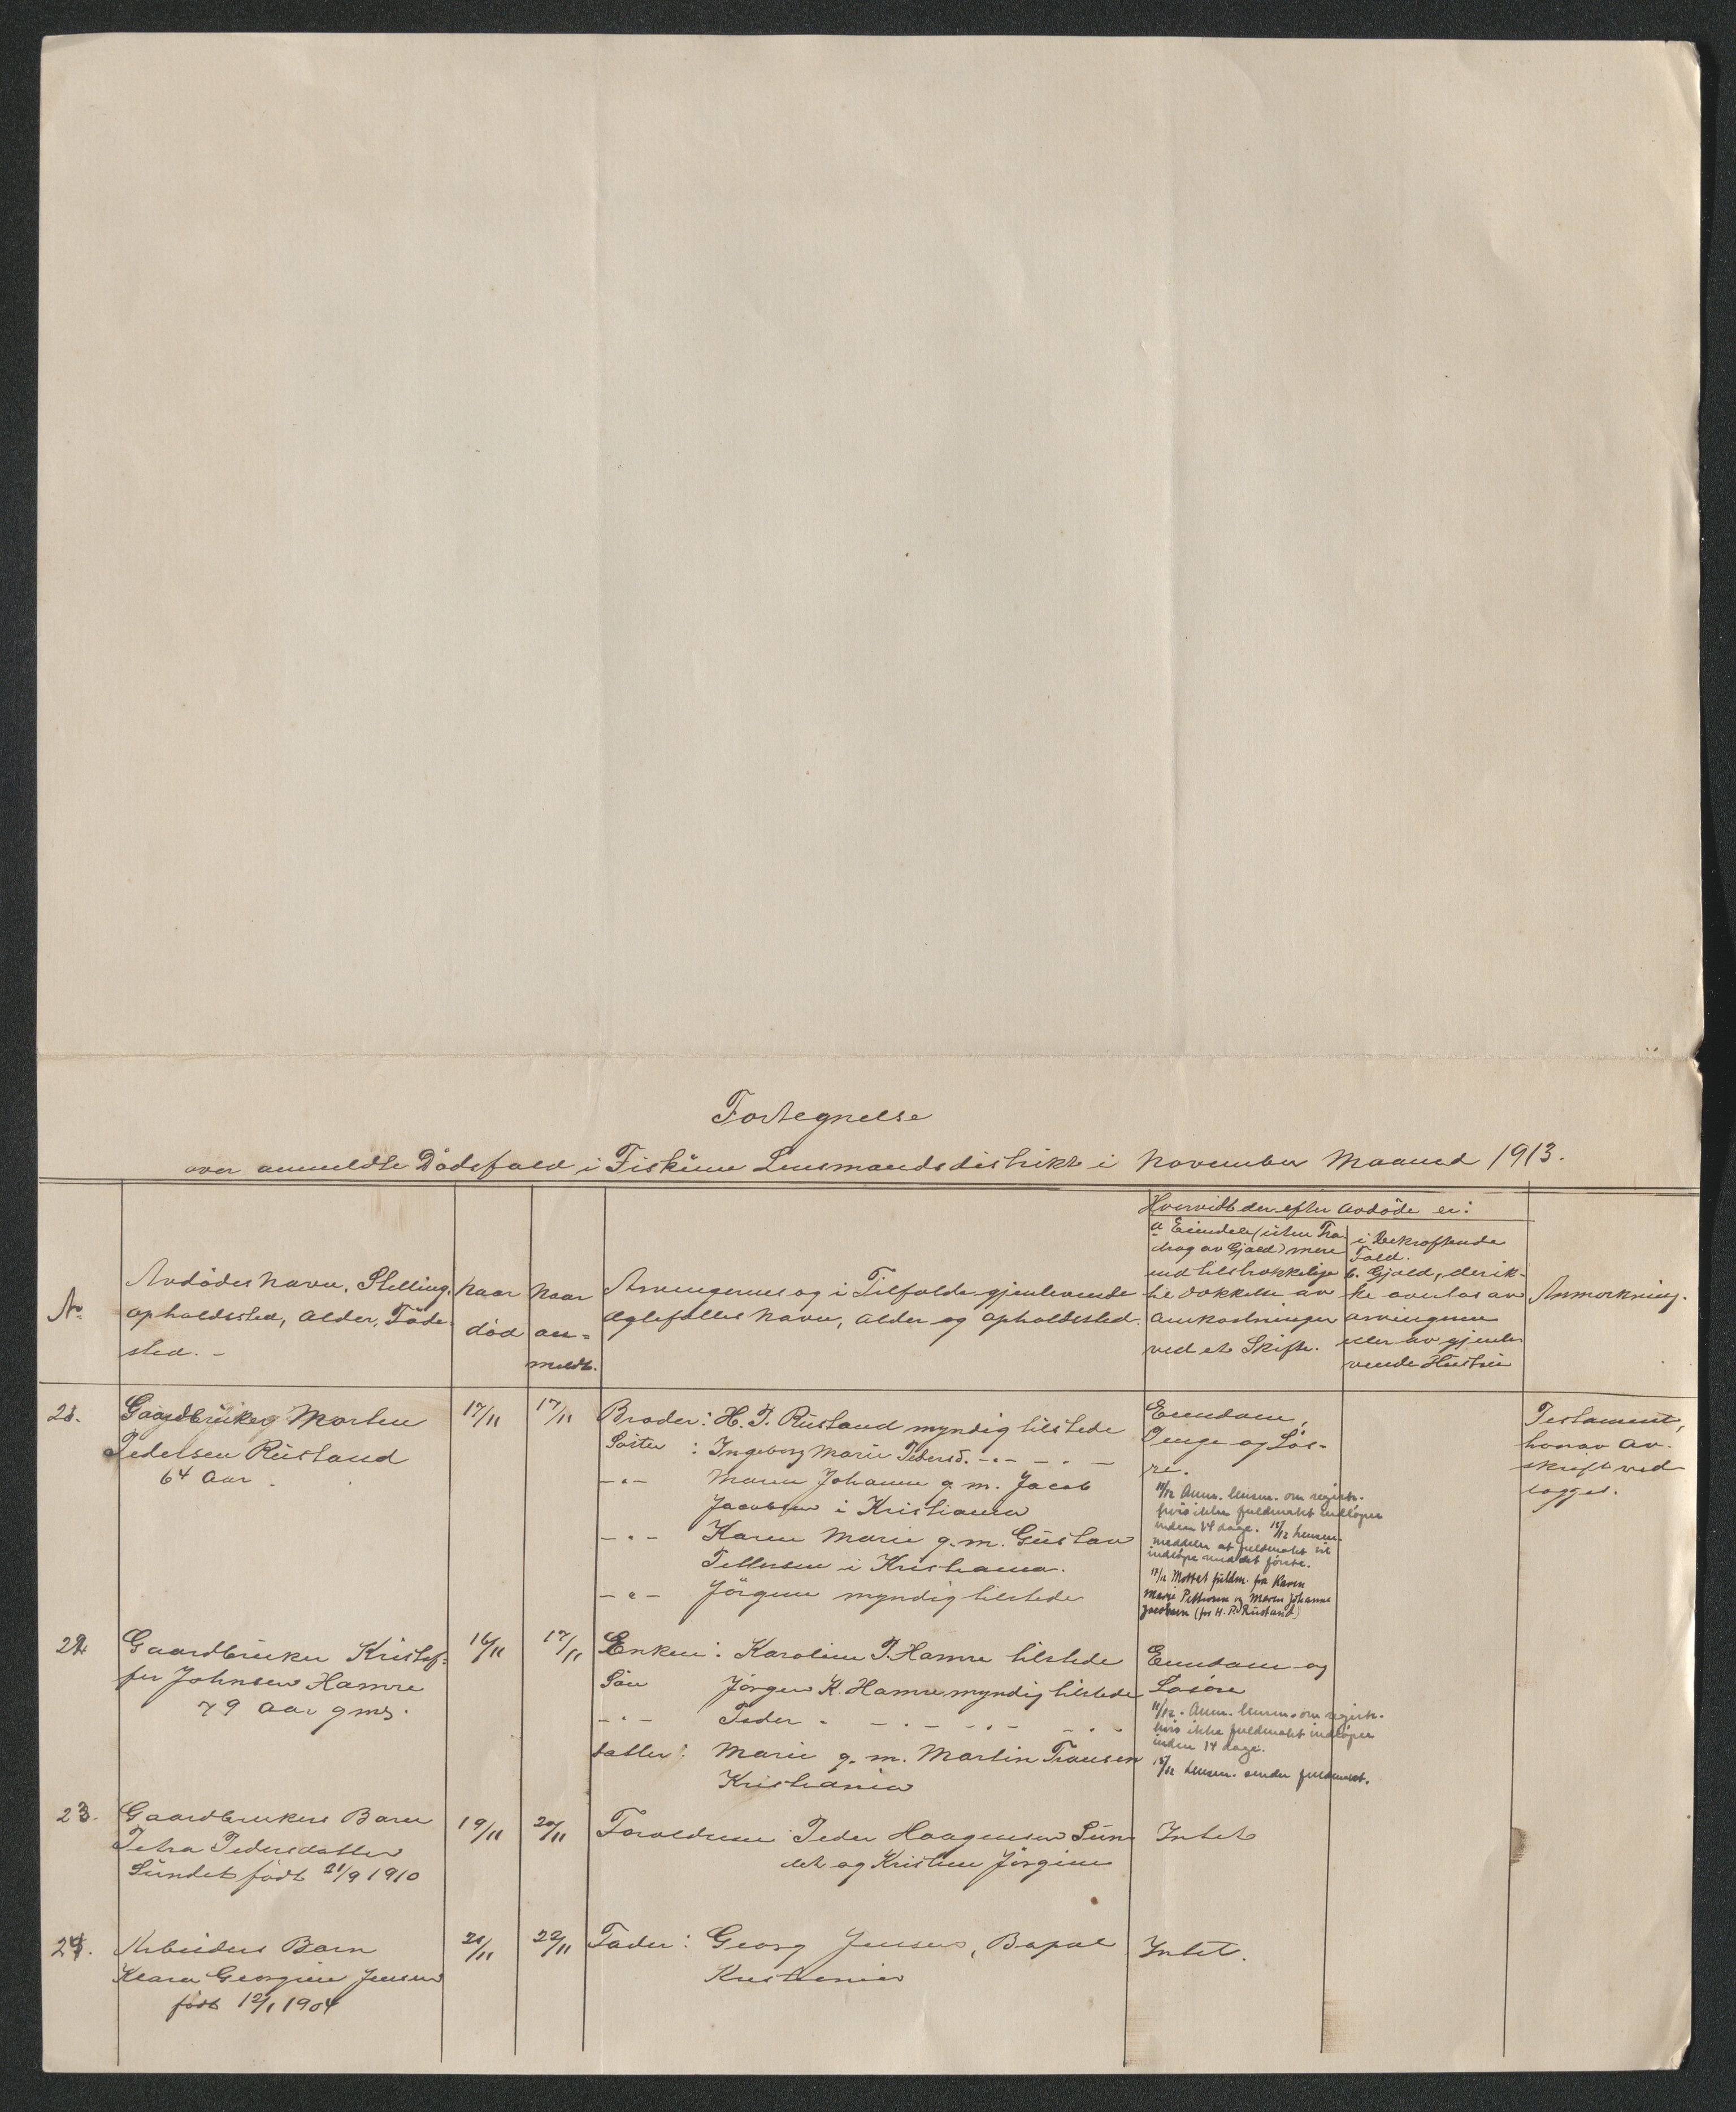 Fortegnelse
over anmeldte Dødsfald i Fiskum Lensmandsdistrikt i November Maaned 1913.
No
Avdødes Navn, Stilling,
opholdssted, alder, Føde-
sted. -
Naar
død
Naar
an-
meldt.
Arvingernes og i Tilfælde gjenlevende
Ægtefælles Navn, alder og opholdssted.
Hvorvidt der efter avdøde er:
a Eiendele (uten Fra-
drag av Gjæld) mere
end tilstrækkelige
til Dækkelse av
Omkostninger
ved et Skifte.
i Bekræftende
Fald.
b. Gjæld, der ik-
ke overtas av
arvingerne
eller av gjenle-
vende Hustru
Anmerkning.
21.
Gaardbruker Morten
Pedersen Rustand
64 Aar
17/11
17/11
Broder: H. P. Rustand myndig tilstede
Søster : Ingeborg Marie Pedersd. -"- - " -
-"- Maren Johanne g. m. Jacob
Jacobsen i Kristiania
-"- Karen Marie g. m. Gustav
i Kristiania.
-"- Jørgine myndig tilstede
Eiendom,
Penge og Løs-
re.
11/12 Anm. lensm. om registr.
hvis ikke fuldmakt indløper
inden 14 dage. 15/12 Lensm.
meddeler at fuldmakt vil
indløpe med det første.
17/12 Mottat fuldm. fra Karen
Marie og Maren Johanne
Jacobsen (for H. P. Rustand)
Testament,
hvorav av-
skrift ved-
lægges.
22
Gaardbruker Kristof-
fer Johnsen Hamre
79 Aar gms.
16/11
17/11
Enken: Karoline P. Hamre tilstede
Søn Jørgen K. Hamre myndig tilstede
-"- Peder " - " - - " - - " -
datter: Marie g. m. Martin Fransen
Kristiania
Eiendom og
Løsøre
11/12. Anm. lensm. om registr.
hvis ikke fuldmakt indløper
inden 14 dage.
15/12 Lensm. sender fuldmakt.
23.
Gaardbrukers Barn
Petra Pedersdatter
Sundet født 21/9 1910
19/11
20/11
Forældrene Peder Haagensen Sun-
det og Kristine Jørgine
Intet
24.
Arbeiders Barn
Klara Georgine Jensen
født 12/1 1904
21/11
22/11
Fader: Georg Jensen,
Kristiania
Intet.